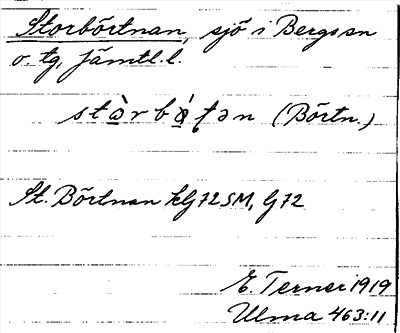 Storbörtnan, sjö i Bergs sn
o. tg, Jämtl. l.
stàrbǿʈən (Börtn.)
St. Börtnan kG72SM, G72
E. Terner 1919
Ulma 463:11